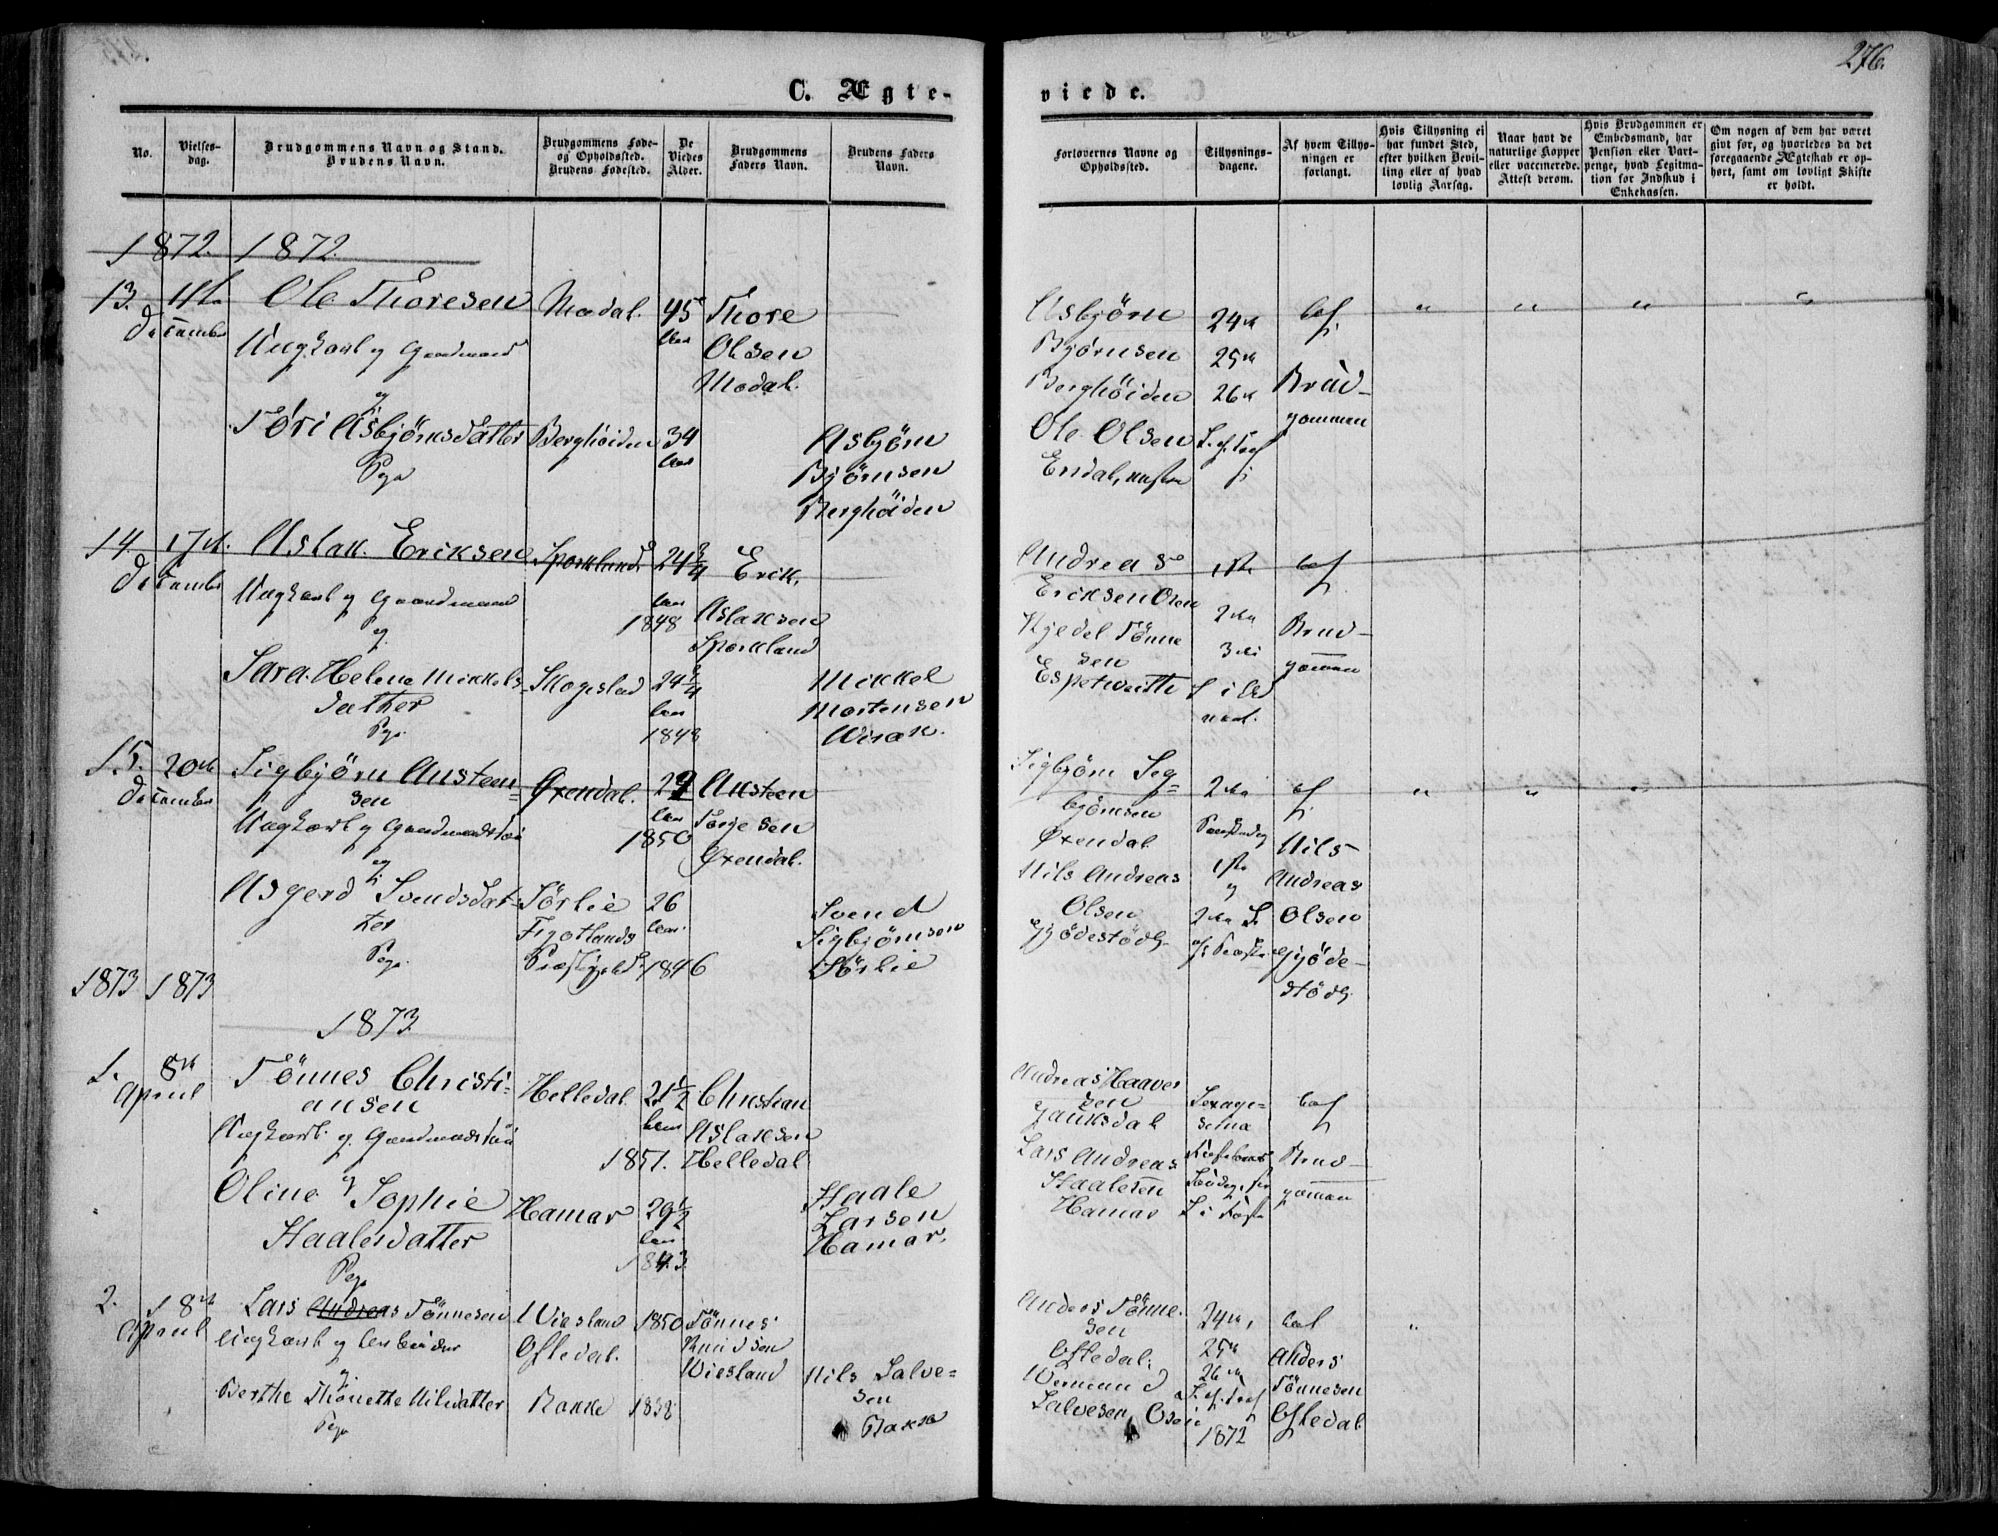 276.
C. Ægte-
viede.
No.
Vielses-
dag.
Brudgommens Navn og Stand.
Brudens Navn.
Brudgommens Føde-
og Opholdssted.
Brudens Fødested.
De
Viedes
Alder.
Brudgommens
Faders Navn.
Brudens Faders
Navn.
Forlovernes Navne og
Opholdssted.
Tillysnings-
dagene.
Af hvem Tillys-
ningen er
forlangt.
Hvis Tillysning ei
har fundet Sted,
efter hvilken Bevil-
ling eller af hvad
lovlig Aarsag.
Naar havt de
naturlige Kopper
eller vaccinerede.
Attest derom.
Hvis Brudgommen er
Embedsmand, har
Pension eller Vart-
penge, hvad Legitma-
tion for Indskud i
Enkekassen.
Om nogen af dem har været
givt før, og hvorledes da det
foregaaende Ægteskab er op-
hørt, samt om lovligt Skifte
er holdt.
1872. 1872.
13. 11te
December
Ole Thoresen
Ungkarl og Gaardmand
og
Töri Asbjörnsdatter
Pige
Modal.
Berghöiden
45
Aar
34
Aar
Thore
Olsen
Modal.
Asbjörn
Bjömsen
Berghöiden
Asbjørn
Bjørnsen
Berghöiden
Ole Olsen
Endal,
24de
25de
26de
af
Brud-
gommen
14. 17de
December
Aslak Eriksen
Ungkarl og Gaardmand
og
Sara Helene Mikkels
datter
Pige
Sporkland
Skogestad
24 3/4
Aar
1848
24 2/4
Aar
1848
Erik
Aslaksen
Sporkland
Mikkel
Mortensen
Wirak.
Andreas
Eriksen
Kjedel Tönne
sen
Espetveidt
1ste
2den
3die
S. i Ad
vent.
af
Brud-
gommen
15. 20de
December
Sigbjörn Austeen=
sen
Ungkarl og Gaardmandssøn
og
Asgerd Svendsdat-
ter
Pige
Øxendal.
Sörlie
Præstegjeld.
Aar
1850
26
Aar
1846
Austeen
Torjesen
Øxendal.
Svend
Sigbjömsen
Sörlie
Sigbjørn Sig=
bjömsen
Øxendal
Nils Andreas
Olsen
Gjödestödl.
2den
1ste
og
2den S.
af
Nils
Andreas
Olsen
Gjöde-
stödl.
1873 1873
1873.
1. 8de
April
Tönnes Christi=
ansen
Ungkarl og Gaardmandssøn
og
Oline Sophie
Haalesdatter
Pige
Helledal
Hamar
21 1/2
Aar
1851.
29 1/2
Aar
1843.
Christian
Aslaksen
Helledal
Haale
Larsen
Hamar.
Andreas Haaver
sen
Lars Andreas
Haalesen
Hamar
Sexage-
sima
S. i Faste
af
Brud-
gommen
2. 18de
April
Lars Andreas Tönnesen
Ungkarl og Arbeider
og
Berthe Thonette Nilsdatter
Pige
Wiesland
Ofledal.
Rakke
1850
1838
Tönnes
Knudsen
Wiesland
Nils Salve=
sen
Rakke
Anders Tönne.
sen
Ofledal.
Wermund
Salvesen Osen
24de
25de
26de
1872
af
Anders
Tönnesen
Ofledal